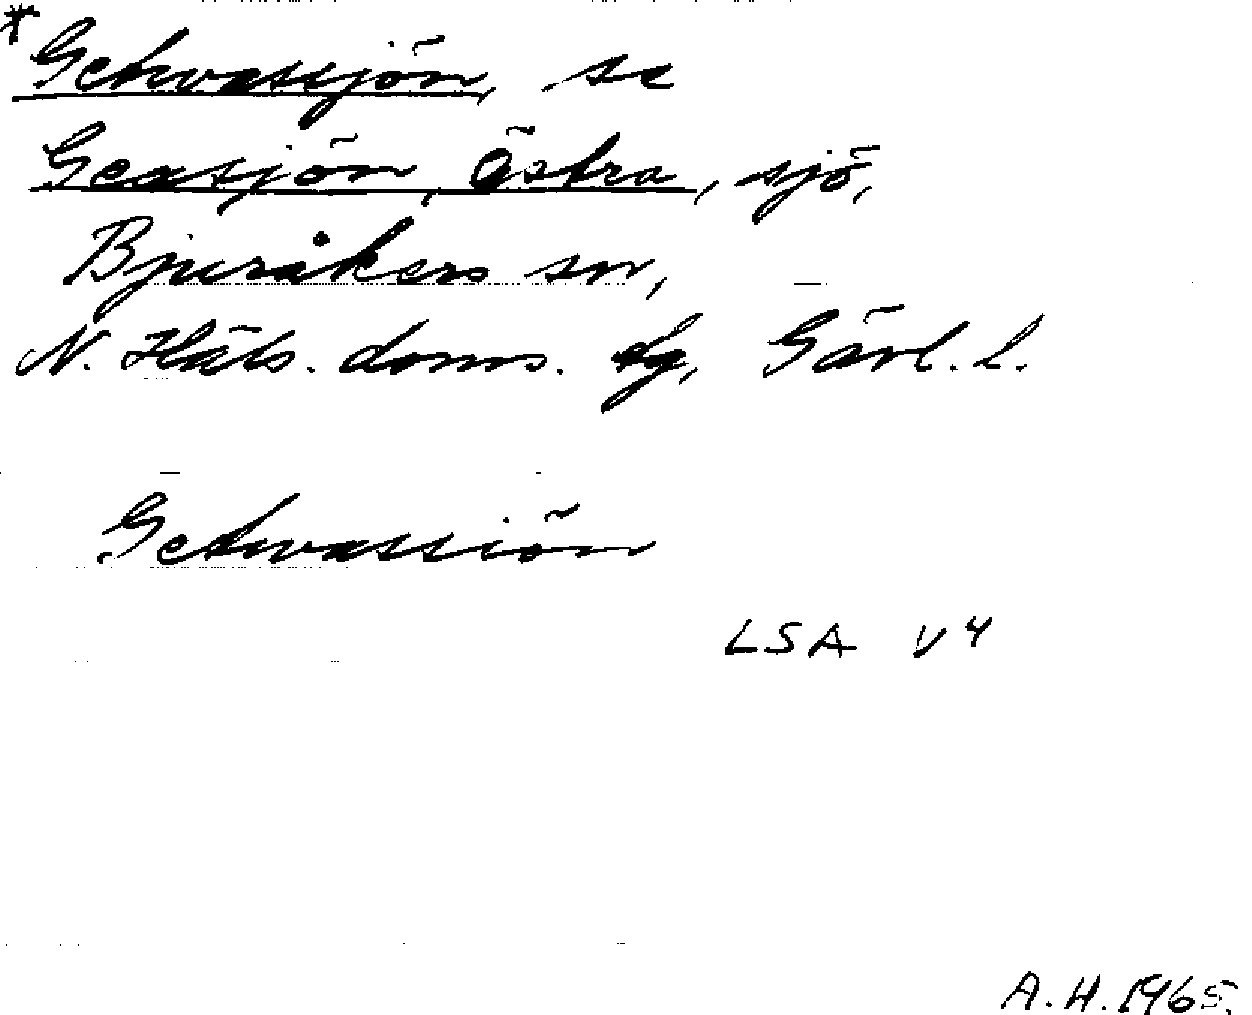 * Getvassjön, se
Geasjön, Östra, sjö,
Bjuråkers sn,
N. Häls. doms. sg, Gävl. l.
Getwassiön
LSA V4
A.H. 1965.